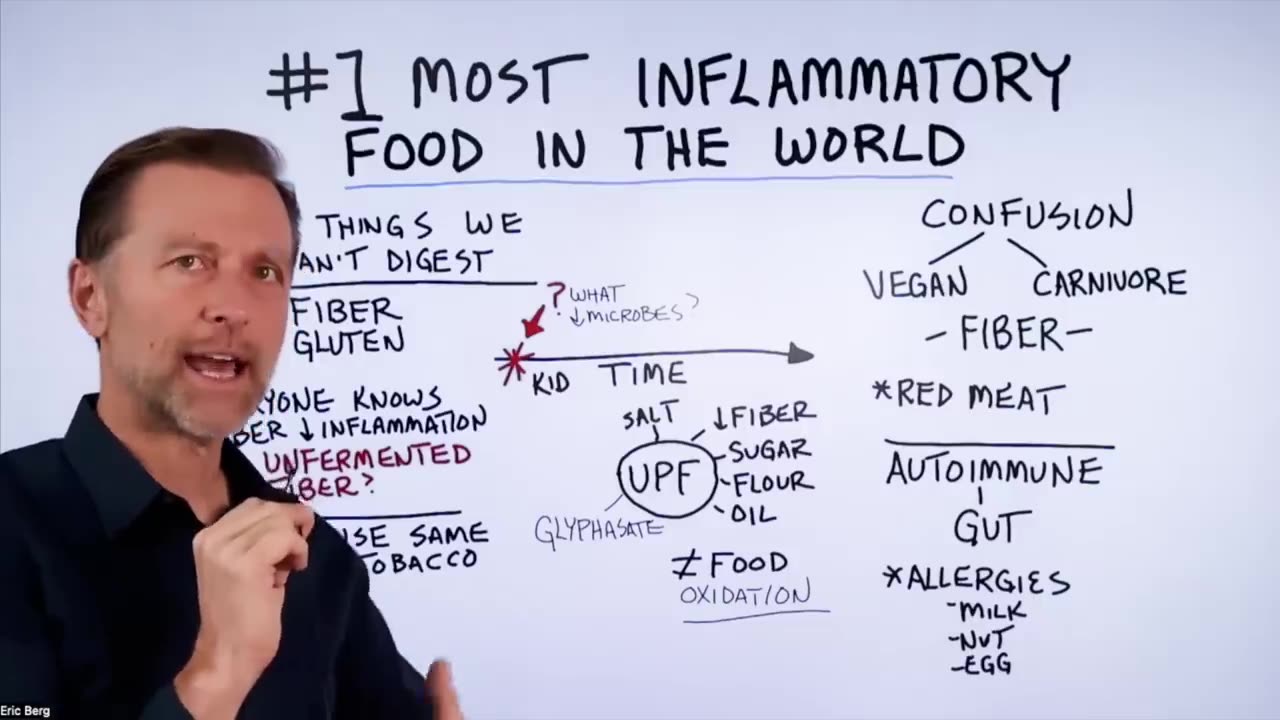 #1 MOST INFLAMMATORY
FOOD IN THE WORLD
THINGS WE
AN'T DIGEST
FIBER
GLUTEN
YONE KNOWS
BER ↓ INFLAMMATION
UNFERMENTED
BER?
SE SAME
OBACCO
? WHAT
↓ MICROBES?
KID TIME
SALT
UPF
↓ FIBER
SUGAR
FLOUR
OIL
GLYPHASATE
≠ FOOD
OXIDATION
CONFUSION
VEGAN CARNIVORE
- FIBER -
*RED MEAT
AUTOIMMUNE
GUT
*ALLERGIES
-MILK
-NUT
-EGG
Eric Berg